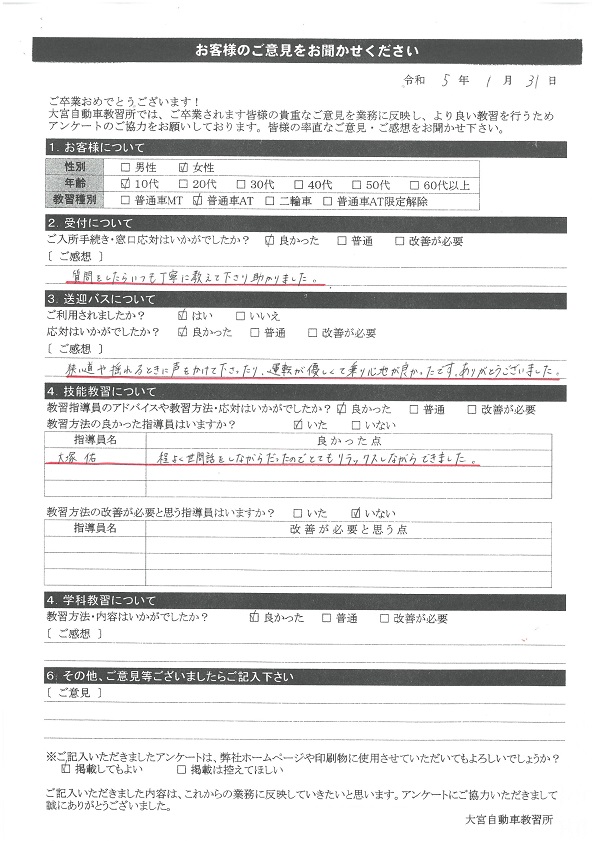 お客様のご意見をお聞かせください
令和 5 年 1 月 31 日
ご卒業おめでとうございます！
大宮自動車教習所では、ご卒業されます皆様の貴重なご意見を業務に反映し、より良い教習を行うため
アンケートのご協力をお願いしております。皆様の率直なご意見・ご感想をお聞かせ下さい。
1. お客様について
性別 □ 男性 ☑ 女性
年齢 ☑ 10代 □ 20代 □ 30代 □ 40代 □ 50代 □ 60代以上
教習種別 □ 普通車MT ☑ 普通車AT □ 二輪車 □ 普通車AT限定解除
2. 受付について
ご入所手続き・窓口応対はいかがでしたか？ ☑ 良かった □ 普通 □ 改善が必要
[ ご感想 ]
質問をしたらいつも丁寧に教えて下さり助かりました。
3. 送迎バスについて
ご利用されましたか？ ☑ はい □ いいえ
応対はいかがでしたか？ ☑ 良かった □ 普通 □ 改善が必要
[ ご感想 ]
狭い道や揺れるときに声をかけて下さったり、運転が優しくて乗り心地が良かったです。ありがとうございました。
4. 技能教習について
教習指導員のアドバイスや教習方法・応対はいかがでしたか？ ☑ 良かった □ 普通 □ 改善が必要
教習方法の良かった指導員はいますか？ ☑ いた □ いない
指導員名 良かった点
大塚 佑 程よく世間話をしながらだったのでとてもリラックスしながらできました。
教習方法の改善が必要と思う指導員はいますか？ □ いた ☑ いない
指導員名 改善が必要と思う点
4. 学科教習について
教習方法・内容はいかがでしたか？ ☑ 良かった □ 普通 □ 改善が必要
[ ご感想 ]
6. その他、ご意見等ございましたらご記入下さい
[ ご意見 ]
※ご記入いただきましたアンケートは、弊社ホームページや印刷物に使用させていただいてもよろしいでしょうか？
☑ 掲載してもよい □ 掲載は控えてほしい
ご記入いただきました内容は、これからの業務に反映していきたいと思います。アンケートにご協力いただきまして
誠にありがとうございました。
大宮自動車教習所